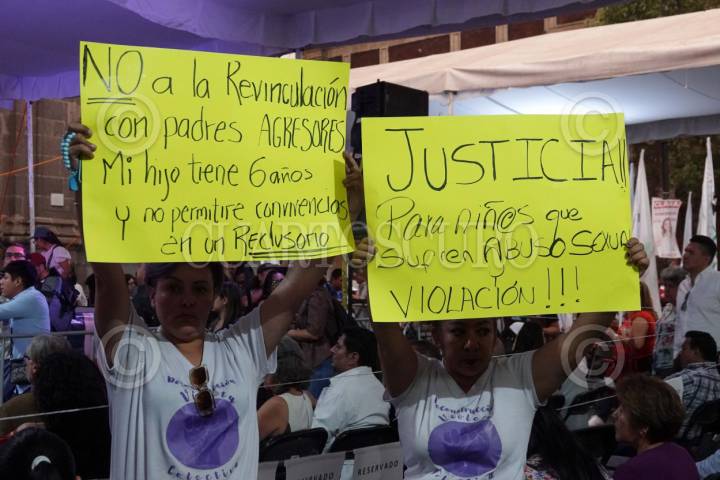 NO a la Revinculación
con padres AGRESORES
Mi hijo tiene 6 años
y no permitire convivencias
en un RECLUSORIO
JUSTICIA!!
Para niñ@s que
sufren Abuso sexual
y
VIOLACIÓN!!!
CUARTOSCURO
Deconstrucción
Violeta
Colectiva
Deconstrucción
Violeta
RESERVADO
RESERVADO